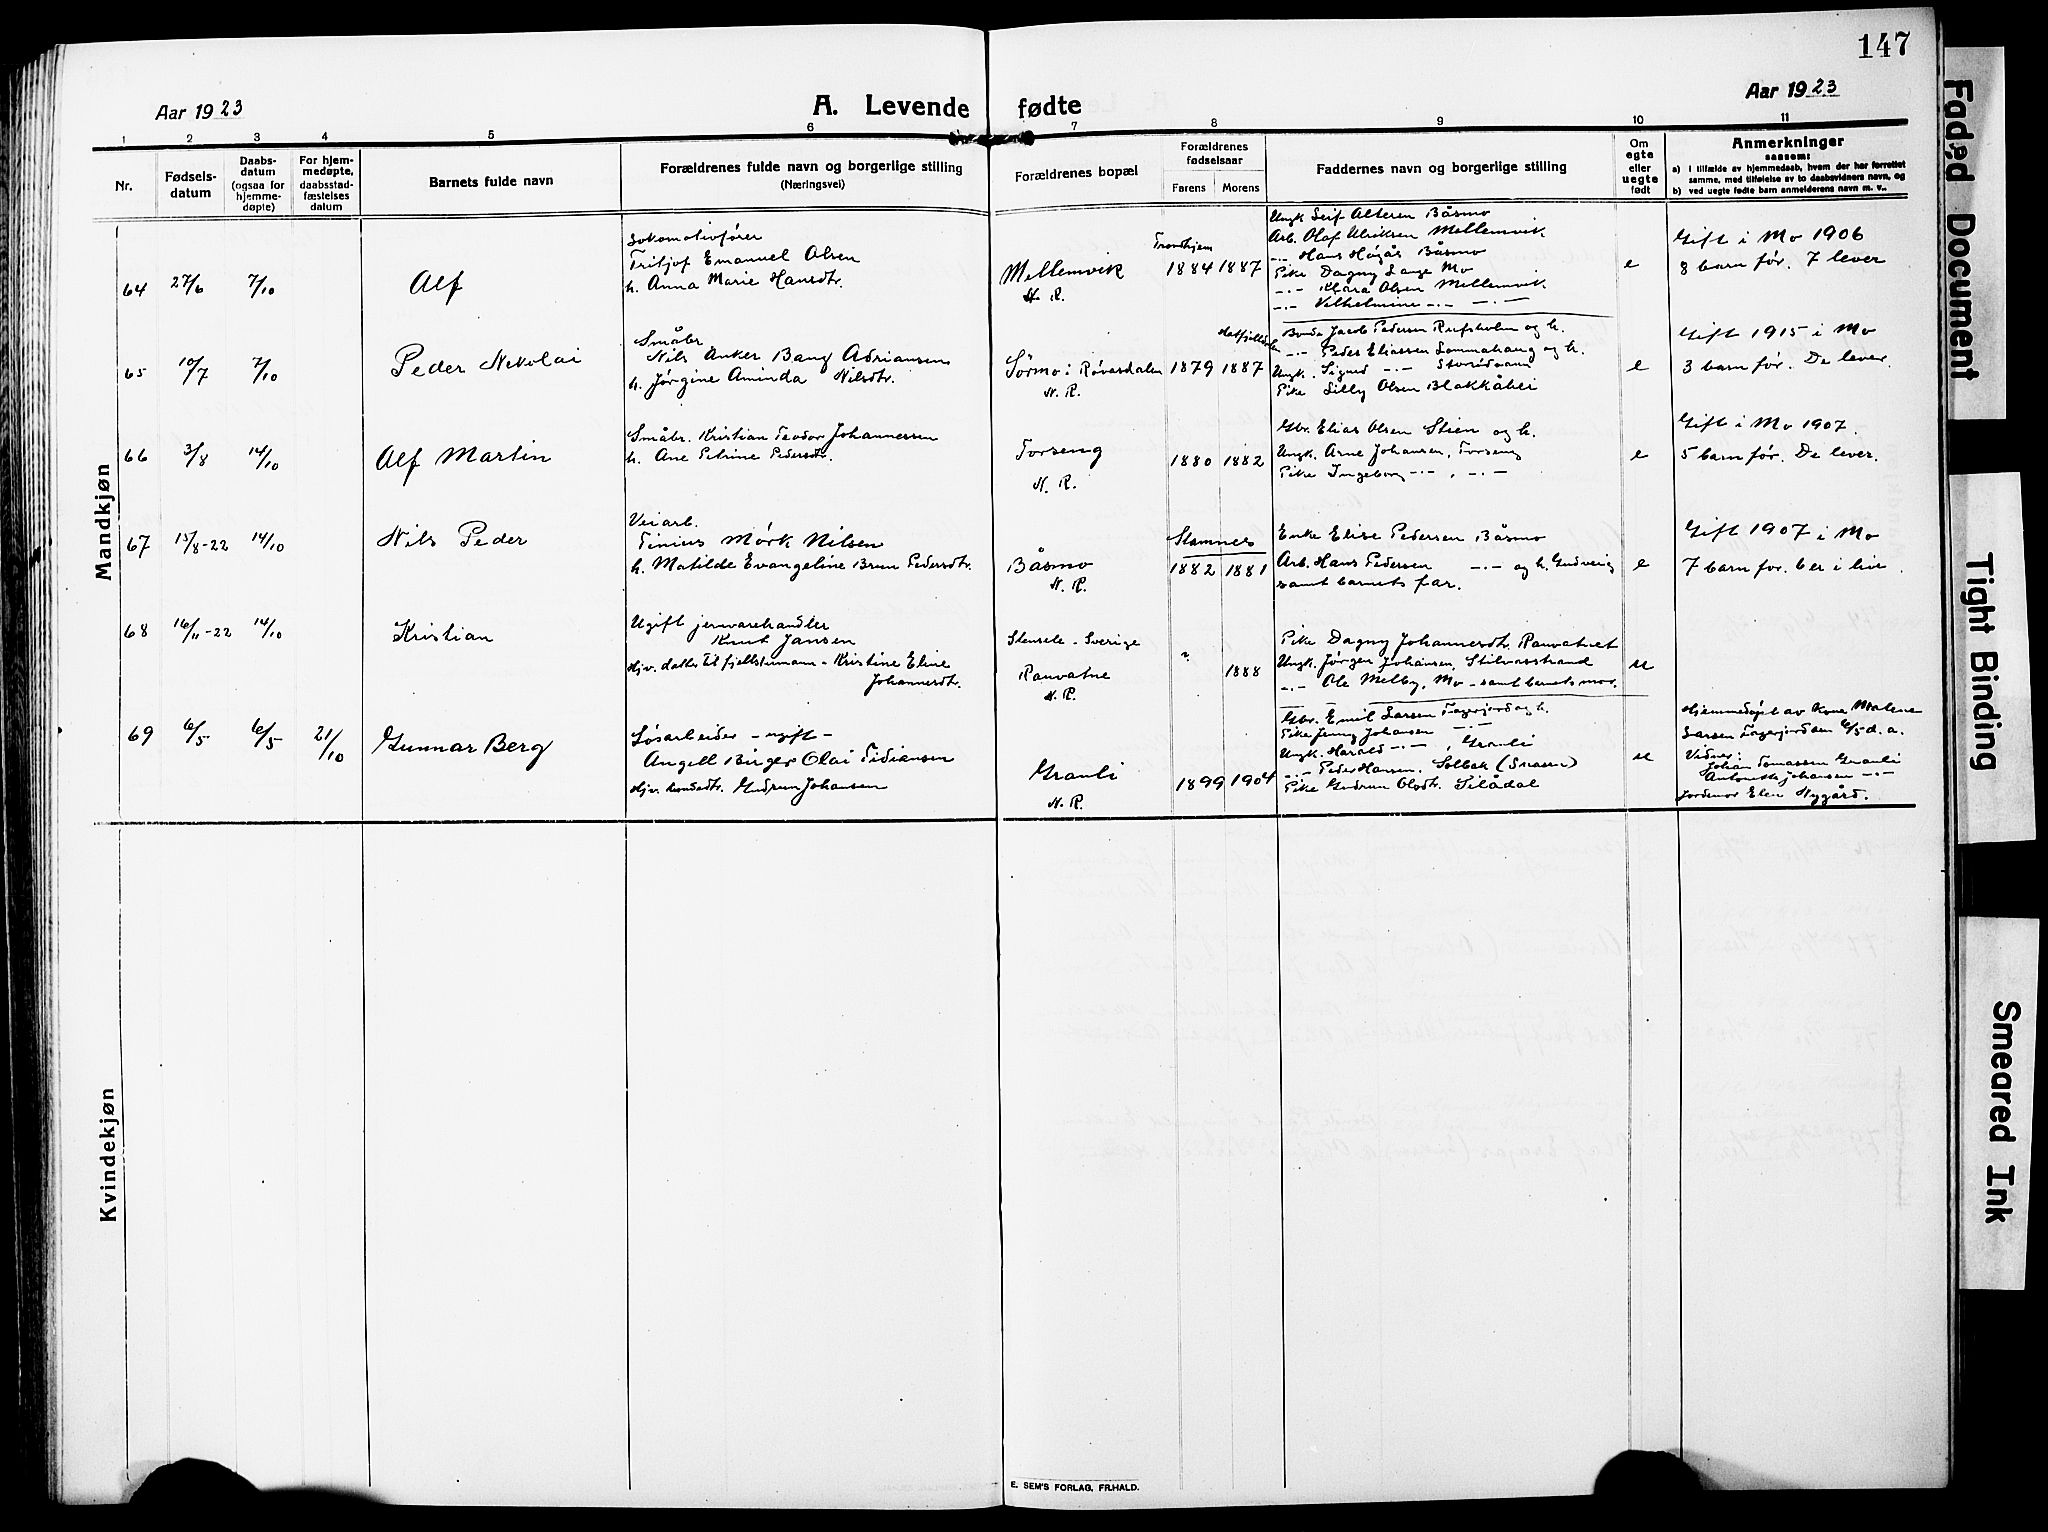 147
Aar 1923
A. Levende fødte
Aar 1923
1 2 3 4 5 6 7 8 9 10 11
Nr.
Fødselsdatum
Daabsdatum (ogsaa for hjemmedøpte)
For hjemmedøpte, daabsstadfæstelses datum
Barnets fulde navn
Forældrenes fulde navn og borgerlige stilling
(Næringsvei)
Forældrenes bopæl
Forældrenes fødselsaar
Farens Morens
Faddernes navn og borgerlige stilling
Om egte eller uegte født
Anmerkninger
saasom:
a) i tilfælde av hjemmedaab, hvem der har forrettet samme, med tilføielse av to daabsvidners navn, og
b) ved uegte fødte barn anmelderens navn m. v.
Mandkjøn
64 27/6 7/10 Alf
Lokomotivfører
Fritjof Emanuel Olsen
h. Anna Marie Hansdtr.
Mellemvik
N. R.
Trondhjem
1884 1887
Ungk Leif Alteren Båsmo
Arb. Olaf Ulriksen Mellemvik
-"- Hans Høgås Båsmo
Pike Dagny Lange Mo
-"- Klara Olsen Mellemvik
-"- Vilhelmine -"- -"-
e
Gift i Mo 1906
8 barn før. 7 lever
65 10/7 7/10 Peder Nikolai
Småbr.
Nils Anker Bang Adriansen
h. Jørgine Aminda Nilsdtr.
Sørmo i Røvasdalen
N. R.
1879 1887
Bonde Jacob Pedersen Rufsholm og h.
-"- Peder Eliassen Lommahaug og h.
Ungk. Sigurd -"-
Pike Lilly Olsen Blakkåbei
e
Gift 1915 i Mo
3 barn før. De lever
66 3/8 14/10 Alf Martin
Småbr. Kristian Teodor Johannessen
h. Ane Petrine Pedersdtr.
Forseng
N. R.
1880 1882
Gbr. Elias Olsen Stien og h.
Ungk. Arne Johansen, Forseng
Pike Ingeborg -"- , -"-
e
Gift i Mo 1907.
5 barn før. De lever.
67 15/8-22 14/10 Nils Peder
Veiarb.
Tinius Mørk Nilsen
h. Matilde Evangeline Brun Pedersdtr.
Båsmo
N. R.
Stamnes
1882 1881
Enke Elise Pedersen Båsmo
Arb. Hans Pedersen -"- og h. Gudverig
samt barnets far.
e
Gift 1907 i Mo
7 barn før. 6 er i live.
68 16/11-22 14/10 Kristian
Ugift jernvarehandler
Knut Jansen
Hjv. datter til fjellstumann - Kristine Eline
Johannesdtr.
Stensele - Sverige
Ranvatne
N. R.
? 1888
Pike Dagny Johannesdtr. Ranvatnet
Ungk. Jørgen Johansen, Stilvasstrand
-"- Ole Melby, Mo - samt barnets mor.
u
69 6/5 6/5 21/10 Gunnar Berg
Løsarbeider - ugift -
Angell Birger Olai Fidiansen
Hjv. bondedtr. Gudrun Johansen
Granli
N. R.
1899 1904
Gbr. Emil Larsen Fagerjord og h.
Pike Jenny Johansen -
Ungk. Harald -"- , Granli
-"- Peder Hansen. Solbak (Snaasen)
Pike Gudrun Olsdtr. Silådal
u
Hjemmedøpt av Kone Malene
Larsen Fagerjorden 6/5 d. a.
Vidner:
Johan Tomassen Granli
Antonette Johansen -"-
Jordmor Elen Nygård.
Kvindekjøn
E. SEM'S FORLAG, FR.HALD.
Faded Document
Tight Binding
Smeared Ink